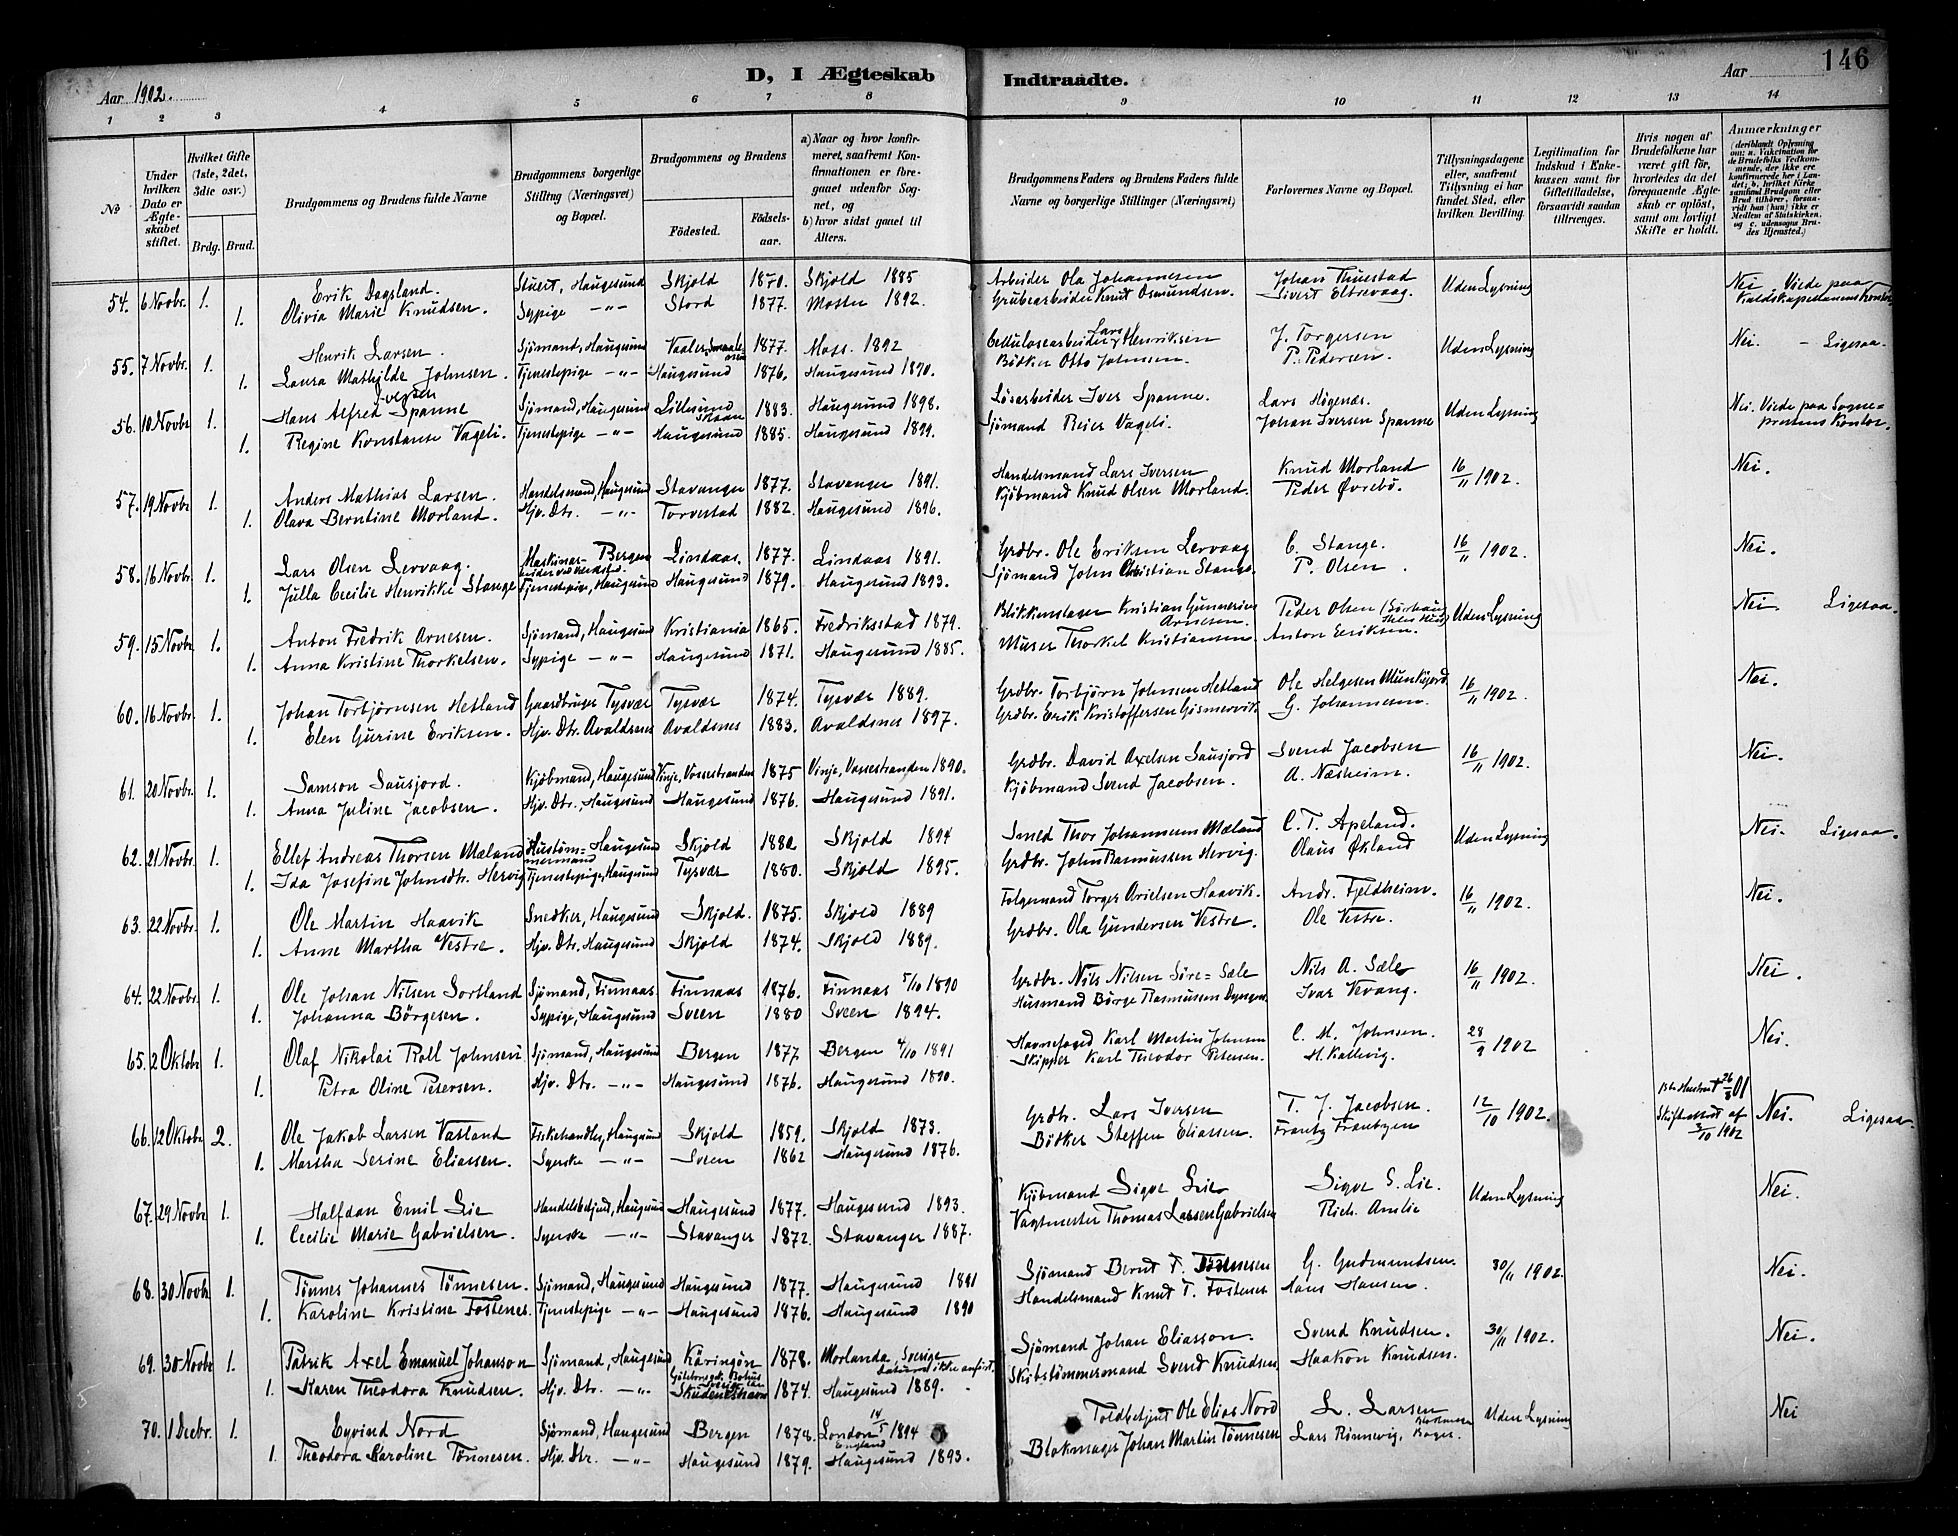 146
D, I Ægteskab Indtraadte.
Aar 1902. Aar
1 2 3 4 5 6 7 8 9 10 11 12 13 14
No
Under hvilken Dato er Ægteskabet stiftet.
Hvilket Gifte (1ste, 2det, 3die osv.)
Brdg. Brud.
Brudgommens og Brudens fulde Navne
Brudgommens borgerlige Stilling (Næringsvei) og Bopæl.
Brudgommens og Brudens
Födested. Födselsaar.
a) Naar og hvor konfirmeret, saafremt Konfirmationen er foregaaet udenfor Sognet, og b) hvor sidst gaaet til Alters.
Brudgommens Faders og Brudens Faders fulde Navne og borgerlige Stillinger (Næringsvei)
Forlovernes Navne og Bopæl.
Tillysningsdagene eller, saafremt Tillysning ei har fundet Sted, efter hvilken Bevilling.
Legitimation for Indskud i Enkekassen samt for Giftetilladelse, forsaavidt saadan tiltrænges.
Hvis nogen af Brudefolkene har været gift før, hvorledes da det foregaaende Ægteskab er opløst, samt om lovligt Skifte er holdt.
Anmærkninger (deriblandt Oplysning om: a. Vakcination for de Brudefolks Vedkommende, der ikke ere konfirmerede her i Landet; b. hvilket Kirkesamfund Brudgom eller Brud tilhører, forsaavidt han (hun) ikke er Medlem af Statskirken, og c. udensogns Brudes Hjemsted.)
54. 6 Novbr. 1. Erik Dagsland. Stuert, Haugesund Skjold 1870. Skjold 1885 Arbeider Ola Johannesen Johan Thuestad Uden Lysning Nei Viede paa
1. Olivia Marie Knudsen. Sypige -"- Stord 1877. Moster 1892. Grubearbeider Knut Osmundsen. Sivert Eltrevaag.
55. 7 Novbr. 1. Henrik Larsen. Sjömand, Haugesund Vaaler Smaalenene 1877. Moss. 1892 Cellulosearbeider Lars Henriksen J. Torgersen Uden Lysning Nei. - Ligesaa.
1. Laura Mathilde Johnsen. Tjenestepige -"- Haugesund 1876. Haugesund 1890. Bötker Otto Johnsen. P. Pedersen.
56. 10 Novbr. 1. Hans Alfred Iversen Spanne Sjömand, Haugesund 1883. Haugesund 1898. Løsarbeider Iver Spanne. Lars Högenæs. Uden Lysning Nei. Viede paa Sogne=
1. Regine Konstanse Vageli. Tjenestepige -"- Haugesund 1885. Haugesund 1899. Sjömand Reier Vageli. Johan Iversen Spanne prestens Kontor.
57. 19 Novbr 1. Anders Mathias Larsen. Handelsmand, Haugesund Stavanger 1877. Stavanger 1891. Handelsmand Lars Iversen Knud Morland 16/11 1902. Nei.
1. Olava Berntine Morland. Hjv. Dtr. -"- Torvestad 1882. Haugesund 1896. Kjöbmand Knud Olsen Morland. Peder Øvrebö.
58. 16 Novbr. 1. Lars Olsen Lervaag. Bergen Lindaas. 1877. Lindaas 1891. Grdbr. Ole Eriksen Lervaag C. Stange. 16/11 1902. Nei.
1. Julla Cecilie Henrikke Stange Tjenestepige, Haugesund Haugesund 1879. Haugesund 1893. Sjömand John Christian Stange. P. Olsen.
59. 15 Novbr 1. Anton Fredrik Arnesen. Sjömand, Haugesund Kristiania 1865. Fredriksstad 1879. Blikkenslager Kristian Gunnerius Arnesen. Peder Olsen Uden Lysning Nei. Ligesaa.
1. Anna Kristine Thorkelsen. Sypige -"- Haugesund 1871. Haugesund 1885. Murer Thorkel Kristiansen Anton Eriksen.
60. 16 Novbr. 1. Johan Torbjörnsen Hetland Gaardbruger Tysvær Tysvær 1874. Tysvær 1889. Grdbr. Torbjörn Johnsen Hetland Ole Helgesen Munkejord 16/11 1902. Nei.
1. Elen Gurine Eriksen. Hjv. Dtr. Avaldsnes Avaldsnes 1883. Avaldsnes 1897. Grdbr. Erik Kristoffersen Gismervik. G. Johannesen.
61. 20 Novbr. 1. Samson Sausjord. Kjöbmand, Haugesund Vinje, Vossestranden 1875 Vinje, Vossestranden 1890. Grdbr. David Axelsen Sausjord Svend Jacobsen 16/11 1902. Nei.
1. Anna Juline Jacobsen. Hjv. Dtr. Haugesund Haugesund 1876. Haugesund 1891. Kjöbmand Svend Jacobsen. A. Næsheim.
62. 21 Novbr. 1. Ellef Andreas Thorsen Mæland Hustömmermand Haugesund Skjold 1880. Skjold 1894 Smed Thor Johannesen Mæland C. T. Apeland. Uden Lysning Nei. Ligesaa.
1. Ida Josefine Johnsdtr. Hervig Tjenestepige, Haugesund Tysvær 1880. Skjold 1895. Grdbr. John Rasmussen Hervig. Olaus Økland
63. 22 Novbr. 1. Ole Martin Haavik Snedker, Haugesund Skjold. 1875. Skjold 1889 Folgemand Torger Haavik. Andr. Fjeldheim. 16/11 1902. Nei.
1. Anne Martha Vestre. Hjv. Dtr. Haugesund Skjold 1874. Skjold 1889. Grdbr. Ola Gundersen Vestre. Ole Vestre.
64. 22 Novbr. 1. Ole Johan Nilsen Sortland Sjömand, Finnaas. Finnaas 1876. Finnaas 5/10 1890 Grdbr. Nils Nilsen Söre=Sæle Nils A. Sæle 16/11 1902. Nei.
1. Johanna Börgesen. Sypige, Haugesund Sveen 1880 Sveen 1894. Husmand Börge Rasmussen Ivar Vevang.
65. 2 Oktobr 1. Olaf Nikolai Roll Johnsen Sjömand, Haugesund Bergen 1877 Bergen 4/10 1891 Havnefoged Karl Martin Johnsen C. M. Johnsen. 28/9 1902 Nei.
1. Petra Oline Petersen. Hjv. Dtr. -"- Haugesund 1876. Haugesund 1890. Skipper Karl Theodor Petersen. H. Kallevig.
66. 12 Oktobr 2. Ole Jakob Larsen Vasland Fiskehandler, Haugesund Skjold 1859. Skjold 1873. Grdbr. Lars Iversen T. J. Jacobsen. 12/10 1902. Skifteattest af 3/10 1902 Nei. Ligesaa.
1. Martha Serine Eliassen. Syerske -"- Sveen 1862 Haugesund 1876. Bötker Steffen Eliassen. Frantz Frantzen
67. 29 Novbr 1. Halfdan Emil Lie Handelsbetjent, Haugesund Haugesund 1877. Haugesund 1893. Kjöbmand Sigve Lie Sigve S. Lie. Uden Lysning Nei.
1. Cecilie Marie Gabrielsen. Syerske -"- Stavanger 1872. Stavanger 1887. Vagtmester Thomas Larsen Gabrielsen Rich. Amlie
68. 30 Novbr 1. Tönnes Johannes Tönnesen. Sjömand, Haugesund Haugesund 1877. Haugesund 1891 Sjömand Bernt T. Tönnesen G. Gudmundsen. 30/11 1902. Nei.
1. Karoline Kristine Fostenes. Tjenestepige -"- Haugesund 1876. Haugesund 1890 Handelsmand Knut T. Fostenes Hans Hansen.
69. 30 Novbr 1. Patrik Axel Emanuel Johanson Sjömand, Haugesund Käringön Göteborgs & Bohus län Sverige 1878. Morlanda, Sverige Datum ikke anfört. Sjömand Johan Eliasson. Svend Knudsen. 30/11 1902. Nei.
1. Karen Theodora Knudsen. Hjv. Dtr. -"- Skudeneshavn 1874. Haugesund 1889. Skibstömmermand Svend Knudsen Haakon Knudsen.
70. 1 Decbr. 1. Eyvind Nord Sjömand, Haugesund Bergen 1878. London 14/5 1894 England Toldbetjent Ole Elias Nord L. Larsen Uden Lysning Nei
1. Theodora Karoline Tönnesen. Hjv. Dtr. -"- Haugesund 1879. Haugesund 1893. Blokmager Johan Martin Tönnesen Lars Rönnevig,